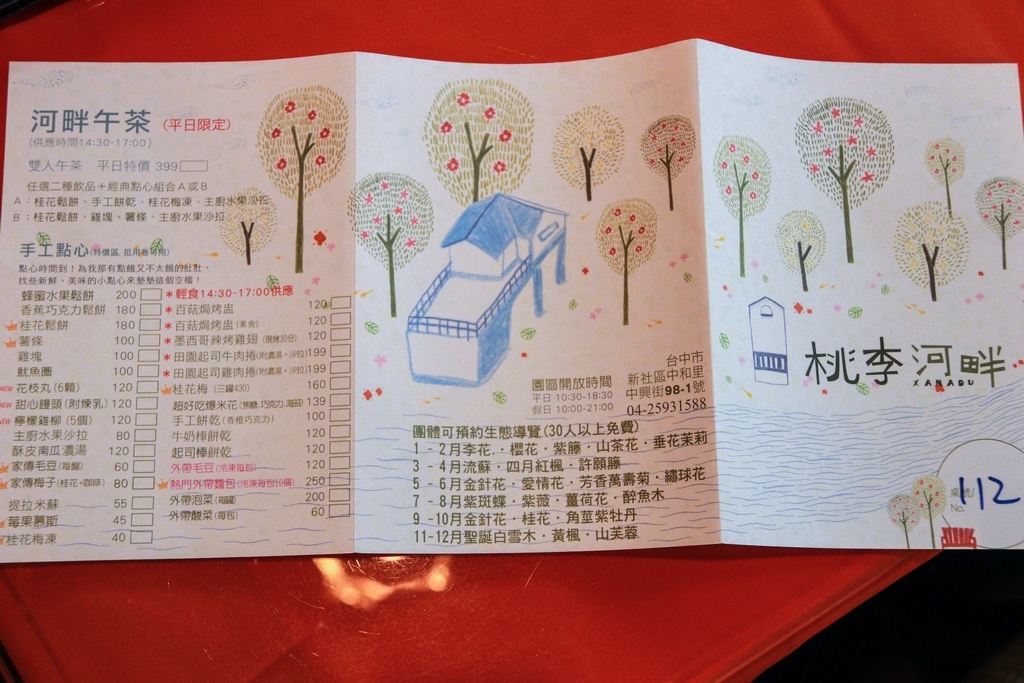 河畔午茶 (平日限定)
(供應時間14:30-17:00)
雙人午茶 平日特價 399
任選二種飲品+經典點心組合A或B
A:桂花鬆餅、手工餅乾、桂花梅凍、主廚水果沙拉
B:桂花鬆餅、雞塊、薯條、主廚水果沙拉
手工點心(特價區, 抵用卷可用)
點心時間到!為我那有點餓又不太餓的肚肚,
找些新鮮、美味的小點心來墊墊這個空檔!
蜂蜜水果鬆餅 200
香蕉巧克力鬆餅 180
桂花鬆餅 180
薯條 100
雞塊 100
魷魚圈 100
NEW 花枝丸(6顆) 120
NEW 甜心饅頭(附煉乳) 120
NEW 檸檬雞柳(5個) 120
主廚水果沙拉 80
酥皮南瓜濃湯 120
家傳毛豆(每盤) 60
家傳梅子(桂花+咖啡) 80
提拉米蘇 55
莓果慕斯 45
桂花梅凍 40
*輕食14:30-17:00供應
*百菇焗烤盅 120
*百菇焗烤盅(素食) 120
*墨西哥辣烤雞翅(現烤30分) 120
*田園起司牛肉捲(附濃湯+沙拉) 199
*田園起司雞肉捲(附濃湯+沙拉) 199
桂花梅(三罐430) 160
超好吃爆米花(焦糖.巧克力.海苔) 139
手工餅乾(香橙巧克力) 100
牛奶棒餅乾 120
起司棒餅乾 120
外帶毛豆(冷凍每包) 120
熱門外帶麵包(冷凍每包10個) 250
外帶泡菜(每罐) 200
外帶酸菜(每包) 60
園區開放時間
平日 10:30-18:30
假日 10:00-21:00
台中市
新社區中和里
中興街98-1號
04-25931588
團體可預約生態導覽(30人以上免費)
1-2月李花.·櫻花·紫藤·山茶花·垂花茉莉
3-4月流蘇·四月紅楓·許願藤
5-6月金針花·愛情花·芳香萬壽菊·繡球花
7-8月紫斑蝶·紫薇·薑荷花·醉魚木
9-10月金針花·桂花·角莖紫牡丹
11-12月聖誕白雪木·黃楓·山芙蓉
桃李河畔
XANADU
桌號
No.
112